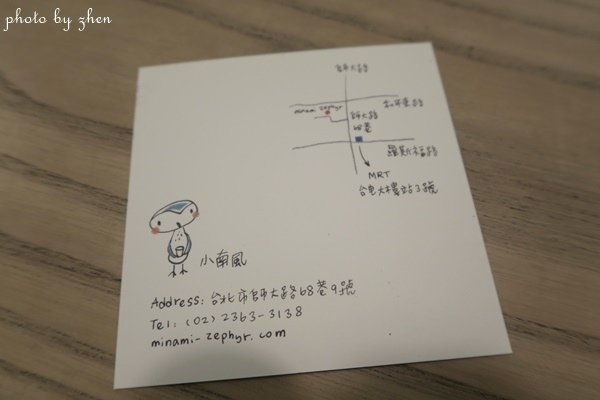 photo by zhen
師大路
和平東路
minami zephyr
師大路
68巷
羅斯福路
MRT
台電大樓站3號
小南風
Address: 台北市師大路68巷9號
Tel: (02) 2363-3138
minami-zephyr.com